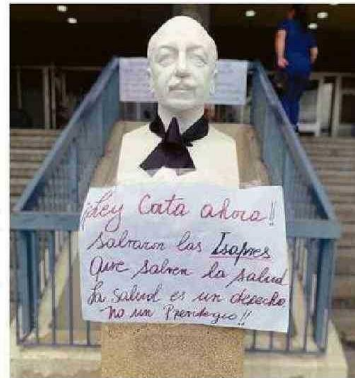 ¡Ley Cata ahora!!
salvaron las Isapres
que salven la salud
La salud es un derecho
no un Privilegio!!